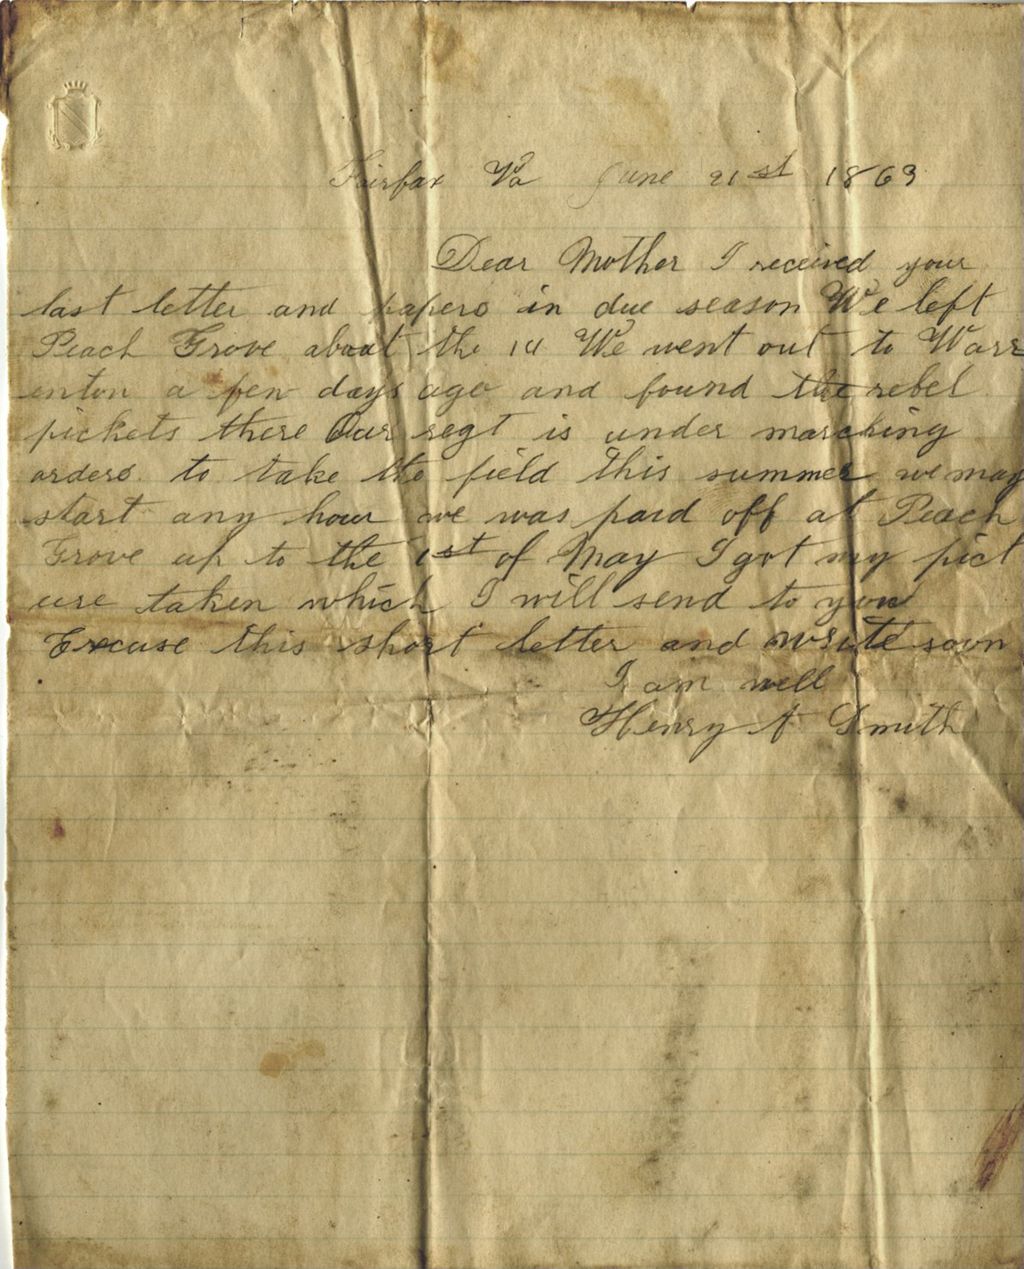 Fairfax Va June 21st 1863
Dear Mother I received your
last letter and papers in due season We left
Peach Grove about the 14 We went out to Warr
enton a few days ago and found the rebel
pickets there Our regt is under marching
orders to take the field this summer we may
start any hour we was paid off at Peach
Grove up to the 1st of May I got my pict
ure taken which I will send to you
Excuse this short letter and write soon
I am well
Henry A Smith